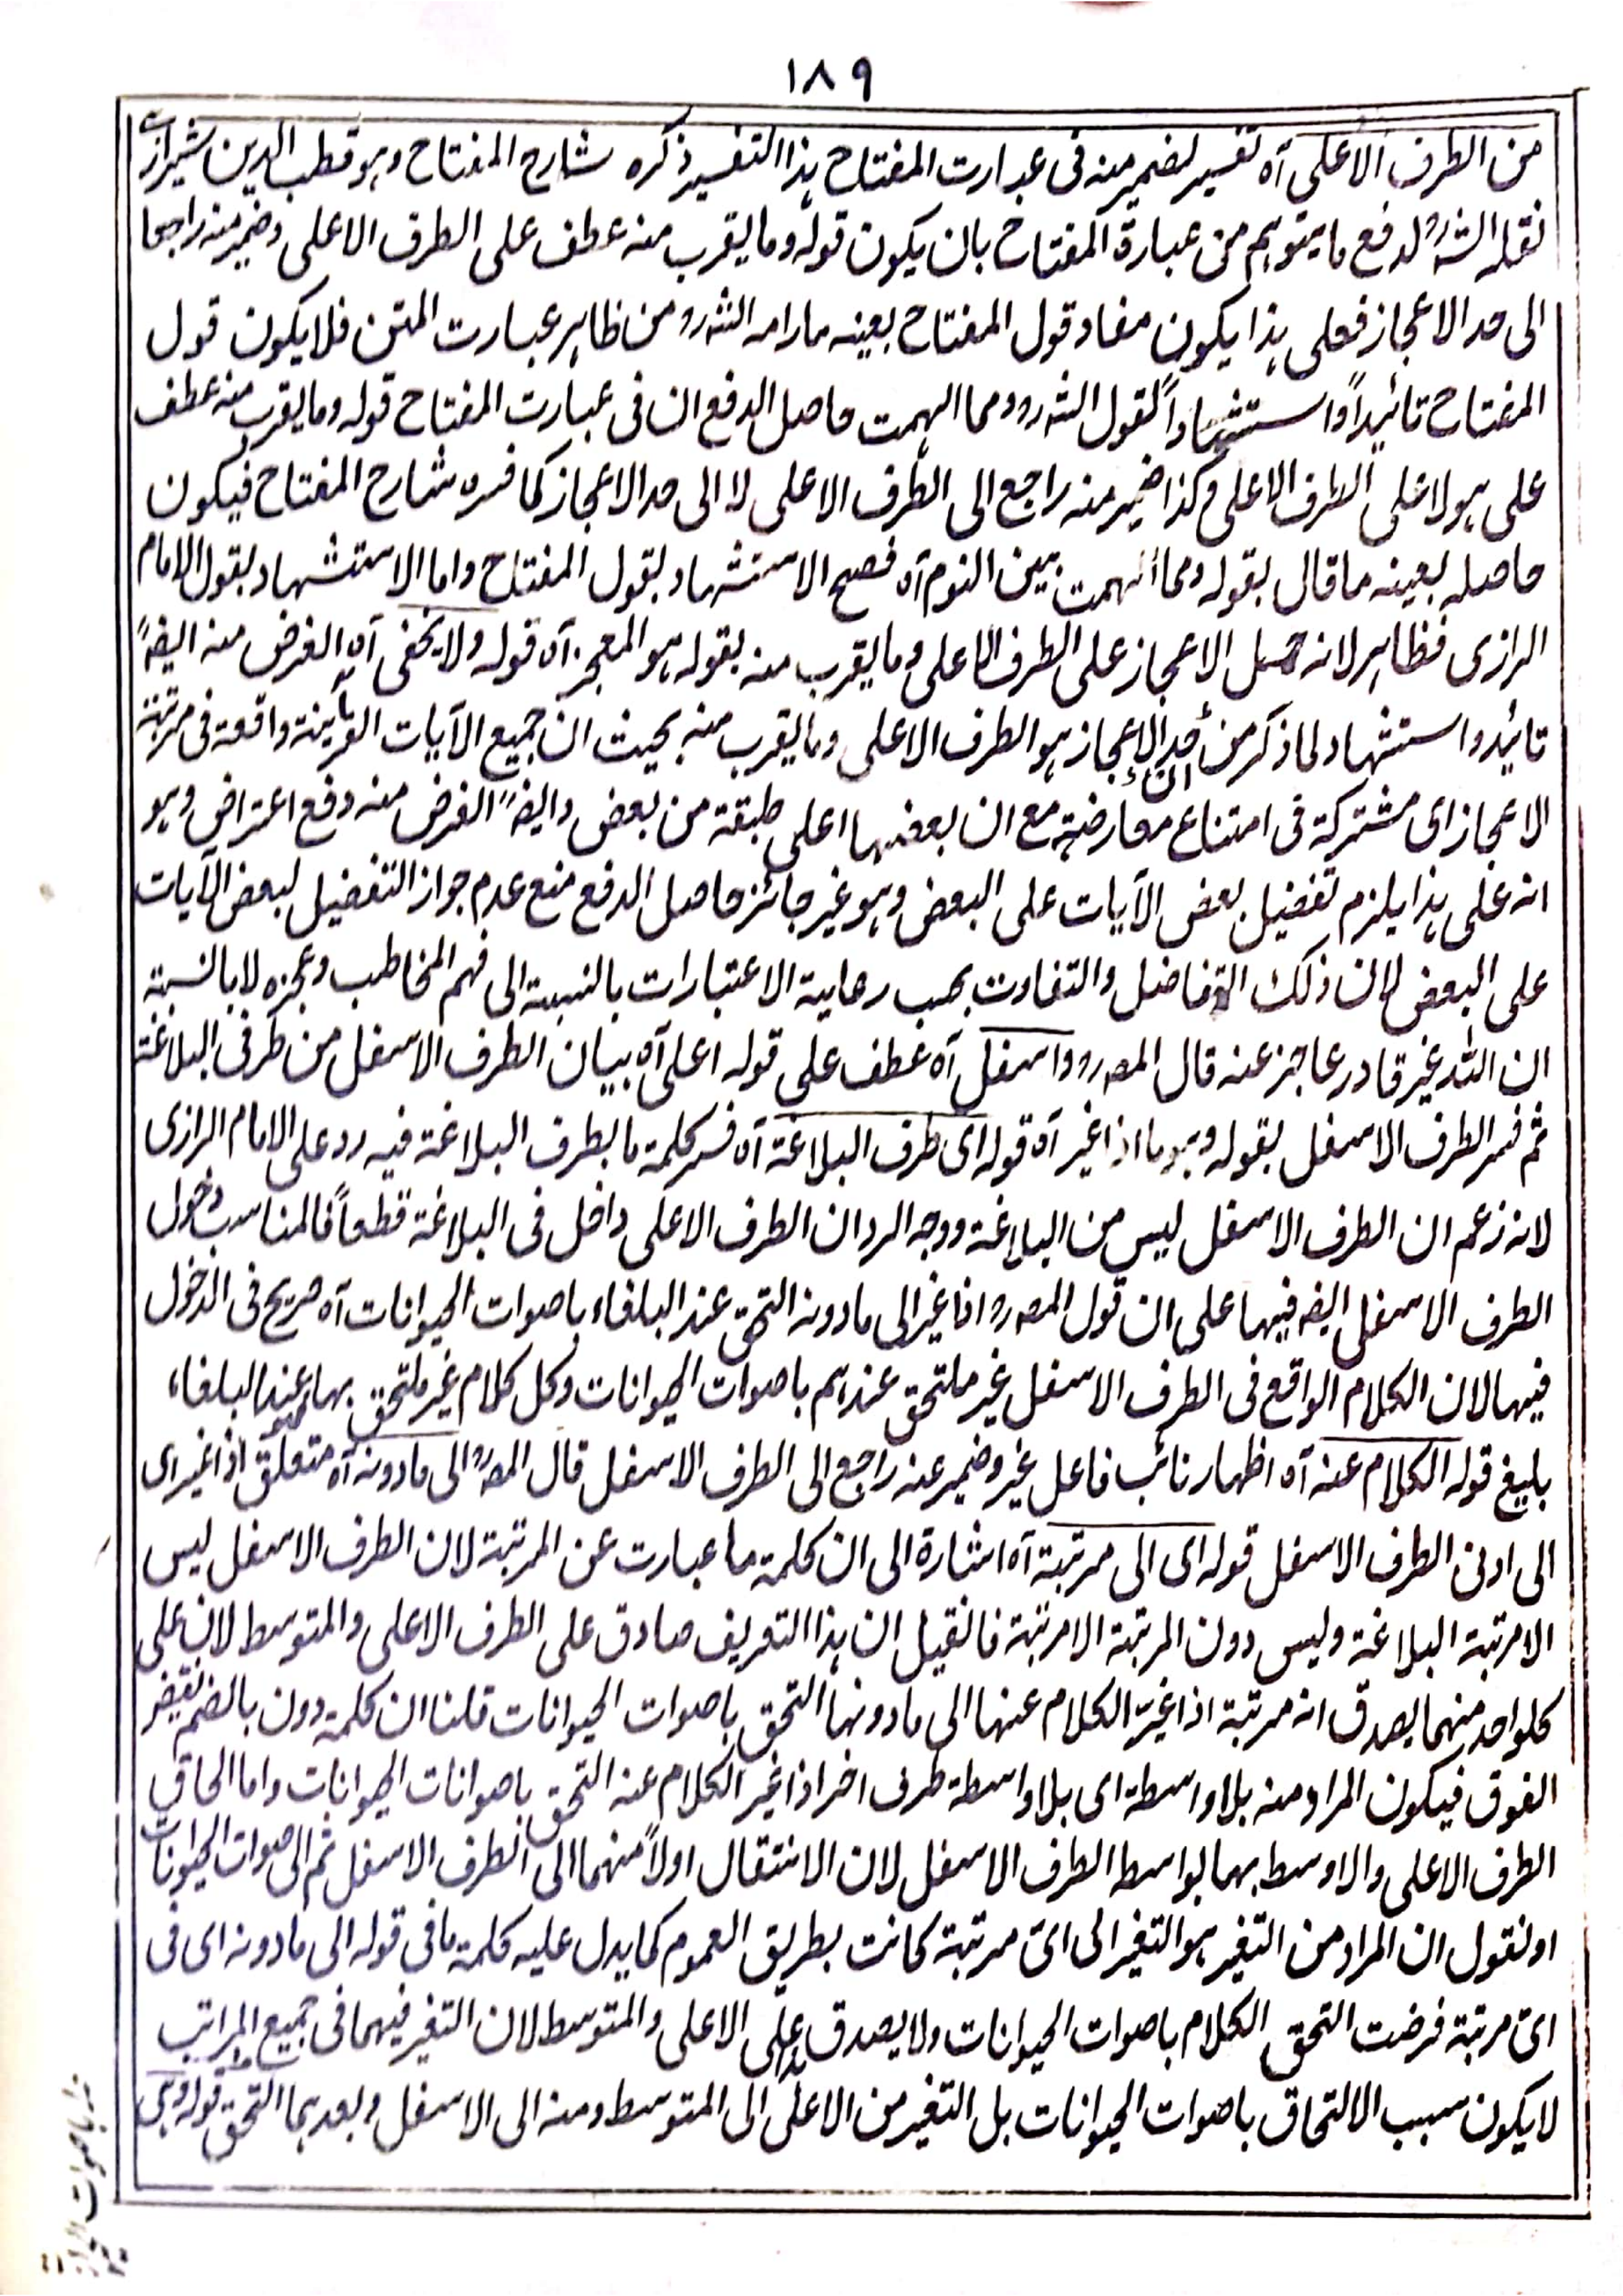 ١٨٩
من الطرف الاعلى آه تفسير لضمير منه فى عبارت المفتاح ہذا التفسير ذكره شارح المفتاح وہو قطب الدين شيرازى
نقله الشہ رح لدفع ما يتوہم من عبارة المفتاح بان يكون قوله وما يقرب منه عطف على الطرف الاعلى وضمير منه راجعا
الى حد الاعجاز فعلى ہذا يكون مفاد قول المفتاح بعينه مارامه الشہ رہ من ظاہر عبارت المتن فلا يكون قول
المفتاح تائيداً واستشہاداً لقول الشہ رہ ومما الہمت حاصل الدفع ان فى عبارت المفتاح قوله وما يقرب منه عطف
على ہو لا على الطرف الاعلى وكذا ضمير منه راجع الى الطرف الاعلى لا الى حد الاعجاز كما فسره شارح المفتاح فيكون
حاصله بعينه ما قال بقوله ومما الہمت بين النوم آه فصح الاستشہاد بقول المفتاح واما الاستشہاد بقول الامام
الرازى فظاہر لانه حمل الاعجاز على الطرف الاعلى وما يقرب منه بقوله ہو المعجز آه قوله ولا يخفى آه الغرض منه ايضہً
تائيد واستشہاد لما ذكر من ان حد الاعجاز ہو الطرف الاعلى وما يقرب منه بحيث ان جميع الآيات القرآنية واقعة فى مرتبة
الاعجاز اى مشتركة فى امتناع معارضتہ مع ان بعضہا اعلى طبقة من بعض وايضہً الغرض منه دفع اعتراض وہو
انه على ہذا يلزم تفضيل بعض الآيات على البعض وہو غير جائز حاصل الدفع منع عدم جواز التفضيل لبعض الآيات
على البعض لان ذلك التفاضل والتفاوت بحسب رعاية الاعتبارات بالنسبة الى فہم المخاطب وعجزه لا بالنسبة
ان اللہ غير قادر عاجز عنه قال المصہ رہ واسفل آه عطف على قوله اعلى آه بيان الطرف الاسفل من طرفى البلاغة
ثم فسر الطرف الاسفل بقوله وہو ما اذا غير آه قوله اى طرف البلاغة آه فسر كلمة ما بطرف البلاغة فيه رد على الامام الرازى
لانه زعم ان الطرف الاسفل ليس من البلاغة ووجه الرد ان الطرف الاعلى داخل فى البلاغة قطعاً فالمناسب دخول
الطرف الاسفل ايضہ فيہا على ان قول المصہ رہ اذا غير الى ما دونه التحق عند البلغاء باصوات الحيوانات آه صريح فى الدخول
فيہا لان الكلام الواقع فى الطرف الاسفل غير ملتحق عندہم باصوات الحيوانات وكل كلام غير ملتحق بہا عند البلغاء
بليغ قوله الكلام عنه آه اظہار نائب فاعل غير وضمير عنه راجع الى الطرف الاسفل قال المصہ الى ما دونه آه متعلق اذا غير اى
الى ادنى الطرف الاسفل قوله اى الى مرتبة آه اشارة الى ان كلمة ما عبارت عن المرتبة لان الطرف الاسفل ليس
الا مرتبة البلاغة وليس دون المرتبة الا مرتبة فانقيل ان ہذا التعريف صادق على الطرف الاعلى والمتوسط لان على
كلواحد منہما يصدق انه مرتبة اذا غيّر الكلام عنہا الى ما دونہا التحق باصوات الحيوانات قلنا ان كلمة دون بالضم نقيض
الفوق فيكون المراد منه بلا واسطة اى بلا واسطة طرف اخر اذا غير الكلام عنه التحق باصوانات الحيوانات واما الحاق
الطرف الاعلى والاوسط بہما بواسطه الطرف الاسفل لان الانتقال اولاً منہما الى الطرف الاسفل ثم الى صوات الحيونات
او نقول ان المراد من التغير ہو التغير الى اىّ مرتبة كانت بطريق العموم كما يدل عليه كلمة ما فى قوله الى ما دونه اى فى
اىّ مرتبة فرضت التحق الكلام باصوات الحيوانات ولا يصدق ہذا على الاعلى والمتوسط لان التغير فيہما فى جميع المراتب
لا يكون سبب الالتحاق باصوات الحيوانات بل التغير من الاعلى الى المتوسط ومنه الى الاسفل وبعدہما التحق قوله وہى